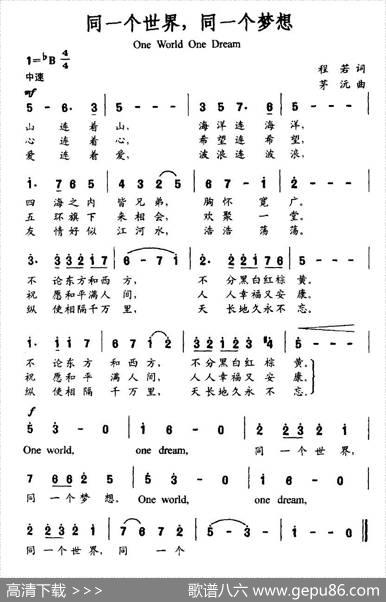 同一个世界，同一个梦想
One World One Dream
1=♭B 4/4
程若 词
中速
茅沅 曲
mf
5 - 6. 3 5 - - - 3 5 7. 6 5 - - -
山连着山， 海洋连海洋，
心连着心， 希望连希望，
爱连着爱， 波浪连波浪，
1. 7 6 5 4 3 2 5 6 7 - 1 2 - - -
四海之内 皆兄弟， 胸怀宽广。
五环旗下 来相会， 欢聚一堂。
友情好似 江河水， 浩浩荡荡。
3. 3 3 2 1 7 6 - 7 1 2. 2 2 1 7 6 5 - - -
不论东方和西方， 不分黑白红棕黄。
祝愿和平满人间， 人人幸福又安康。
纵使相隔千万里， 天长地久永不忘。
1. 1 1 7 6 7 1 2 3 2 1 2 3 #4 5 - - -
不论东方 和西方， 不分黑白红棕黄。
祝愿和平 满人间， 人人幸福又安康。
纵使相隔 千万里， 天长地久永不忘。
f
5 3 - 0 6 1 - 0 2 2 3 2 1
One world, one dream, 同一个世界，
7 6 6 2 5 5 3 - 0 6 1 - 0
同一个梦想。 One world, one dream,
2 2 3 2 1 7 6 7 2 5 - - - 5 0 0 0
同一个世界， 同一个
高清下载 >>>
歌谱八六 www.gepu86.com